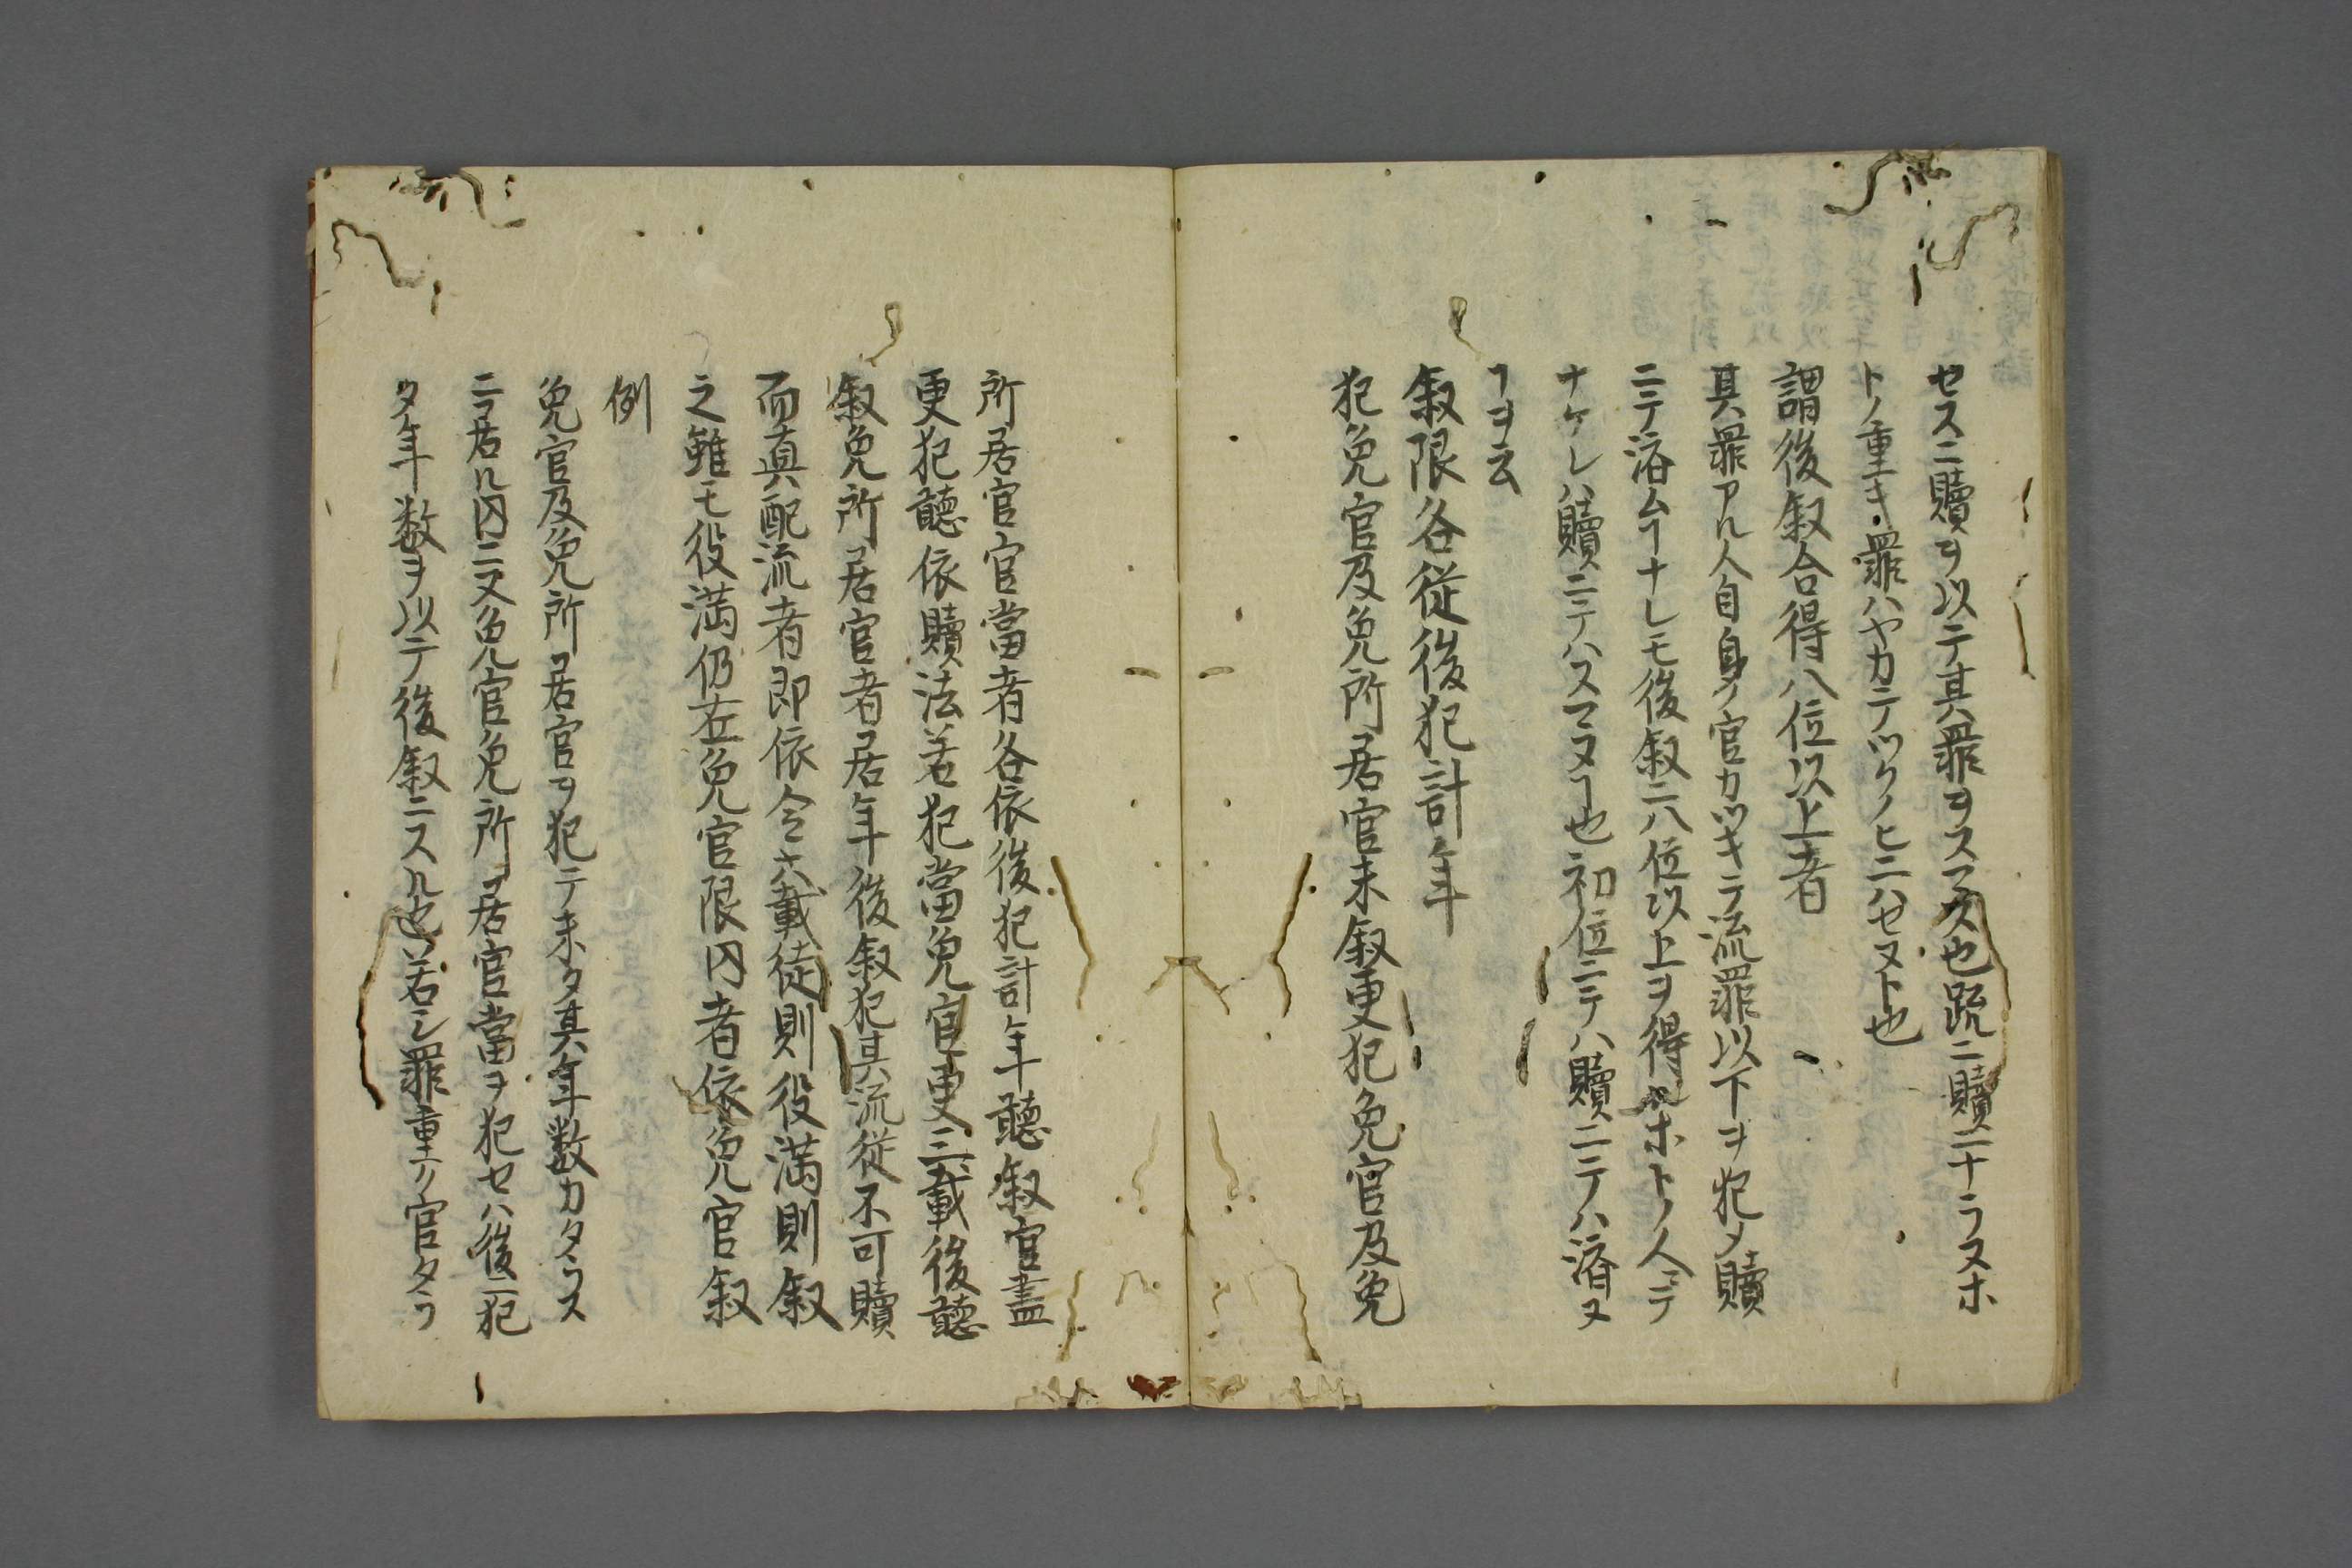 セスニ贖ヲ以テ其罪ヲスマス也疏ニ贖ニナラヌホ
トノ重キ罪ハヤカテツクノヒニハセヌト也
謂後叙合得八位以上者
其罪アル人自身ノ官カツキテ流罪以下ヲ犯メ贖
ニテ済ムヿナレモ後叙ニ八位以上ヲ得ルホトノ人ニテ
ナケレハ贖ニテハスマヌヿ也初位ニテハ贖ニテハ済ヌ
ヿヲ云
叙限各従後犯計年
犯免官及免所居官未叙更犯免官及免
所居官官當者各依後犯計年聴叙官盡
更犯聴依贖法若犯當免官更三載後聴
叙免所居官者居年後叙犯其流従不可贖
而真配流者即依令六載徒則役満則叙
之雖モ役満仍在免官限内者依免官叙
例
免官及免所居官ヲ犯テ未タ其年数カタヽス
ニ居ル内ニ又免官免所居官當ヲ犯セハ後ニ犯
タ年数ヲ以テ後叙ニスル也若シ罪重ク官タラ